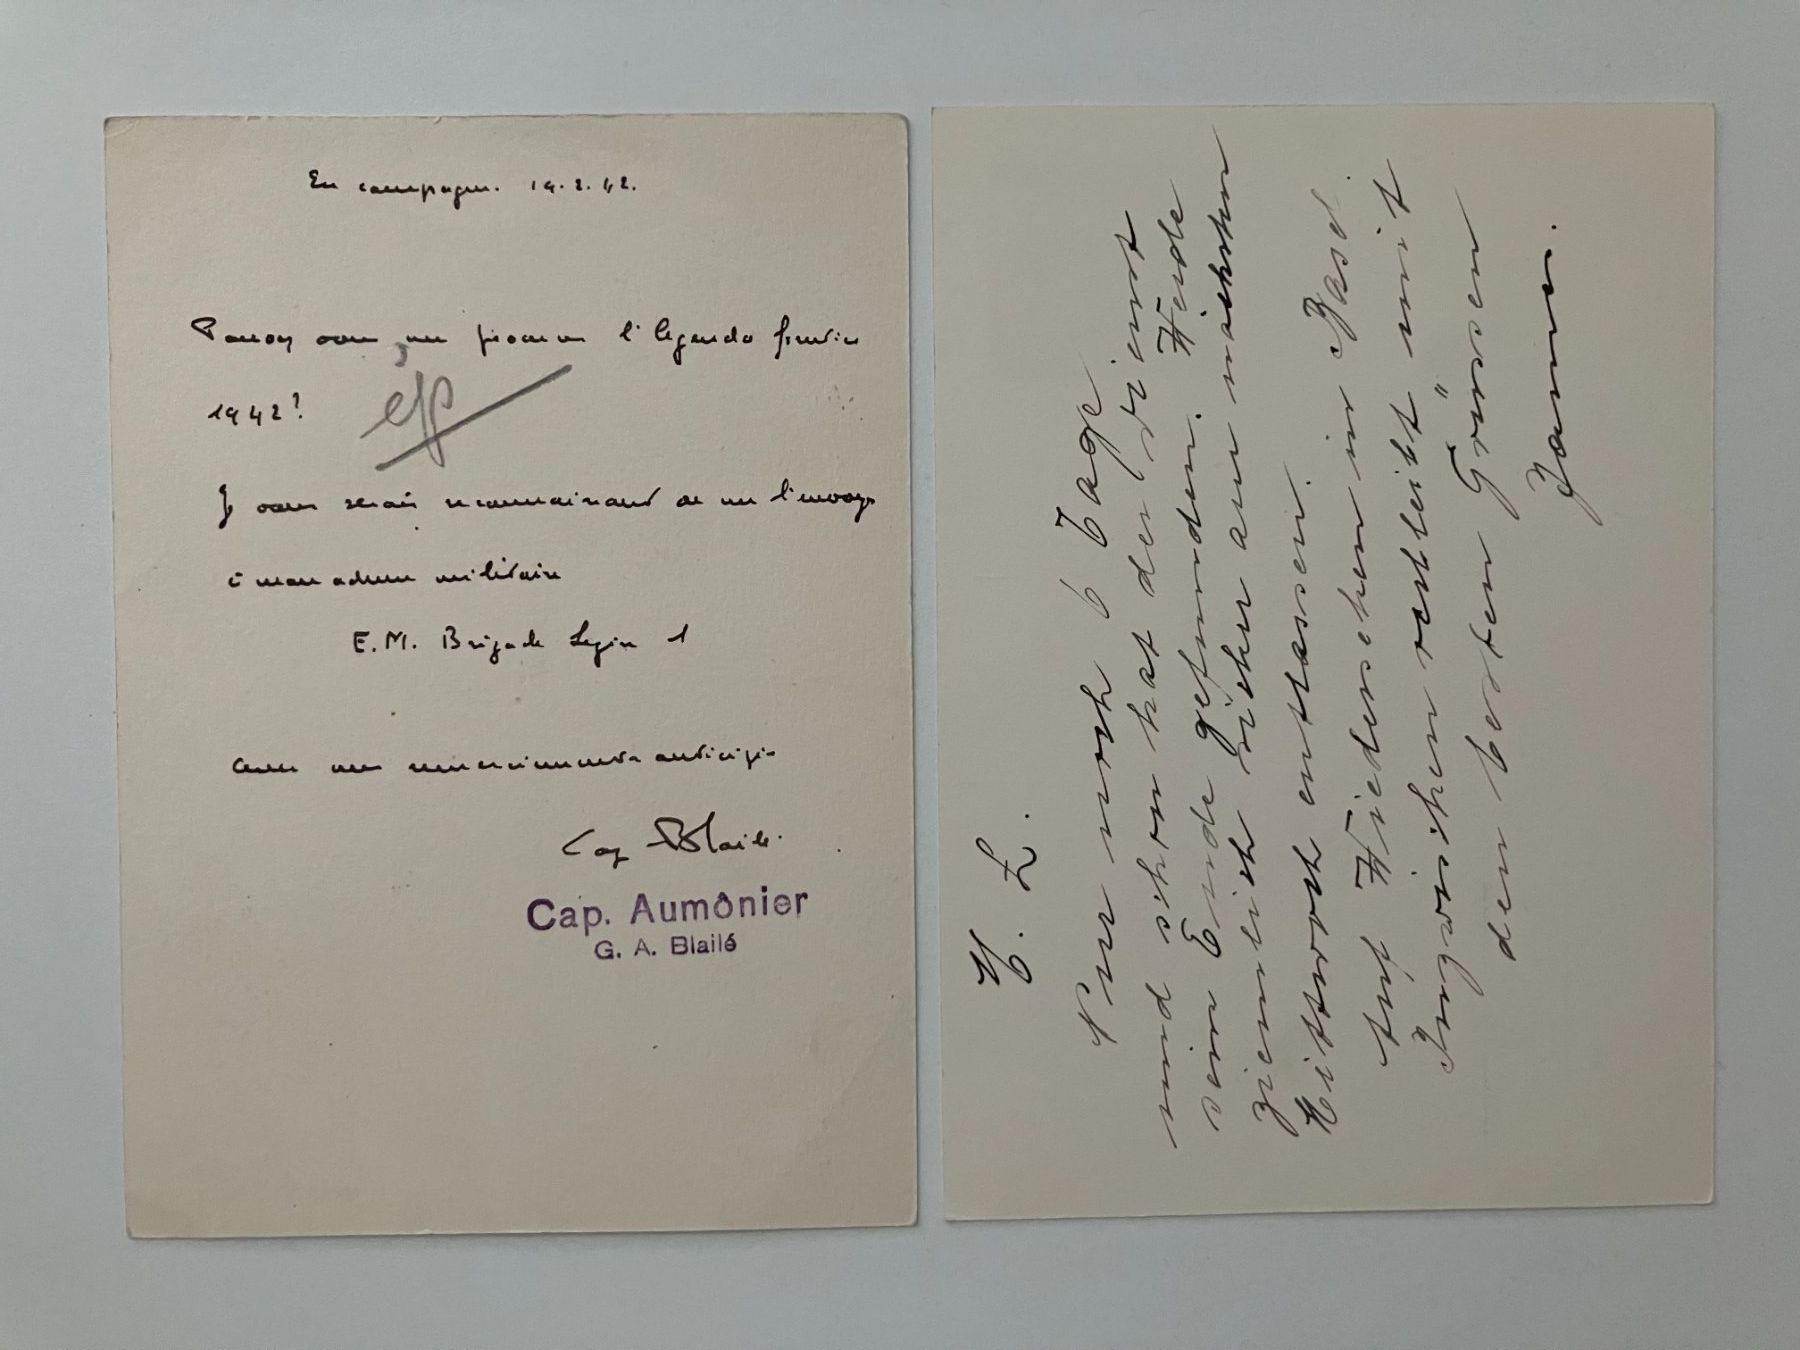 En campagne. 19.2.42.
Pouvez vous me procurer l'agenda
1942?
Je vous serais reconnaissant de me l'envoyer
à mon adresse militaire
E. M. Brigade légère 1
avec mes remerciements anticipés
Cap Blailé.
Cap. Aumônier
G. A. Blailé
M. L.
Nur noch 6 Tage
und schon hat der Dienst
sein Ende gefunden. Werde
ziemlich sicher am nächsten
Mittwoch entlassen.
Auf Wiedersehen in Basel.
Inzwischen verbleibt mit
den besten Grüssen